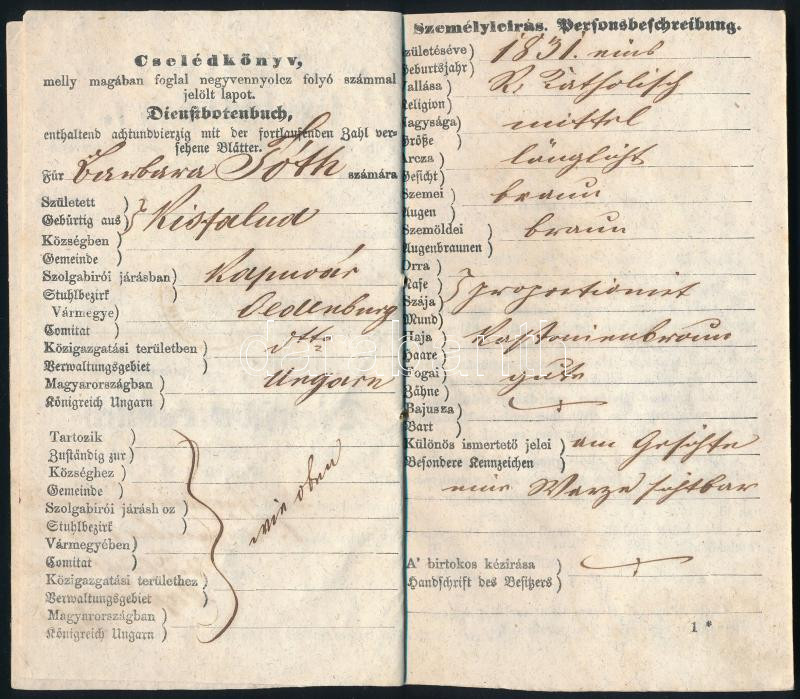 Cselédkönyv,
melly magában foglal negyvennyolcz folyó számmal
jelölt lapot.
Dienstbotenbuch,
enthaltend achtundvierzig mit der fortlaufenden Zahl ver-
sehene Blätter.
Für Barbara Tóth számára
Született
Gebürtig aus Kisfalud
Községben
Gemeinde
Szolgabirói járásban Kapuvár
Stuhlbezirk
Vármegye Oedenburg
Comitat
Közigazgatási területben dtto
Verwaltungsgebiet
Magyarországban Ungarn
Königreich Ungarn
Tartozik
Zuständig zur
Községhez
Gemeinde
Szolgabirói járáshoz wie oben
Stuhlbezirk
Vármegyében
Comitat
Közigazgatási területhez
Verwaltungsgebiet
Magyarországban
Königreich Ungarn
Személyleirás. Personsbeschreibung.
zületéséve 1831.
Geburtsjahr
Vallása R. Katholisch
Religion
Nagysága mittel
Größe
Arcza länglicht
Gesicht
Szemei braun
Augen
Szemöldei braun
Augenbraunen
Orra
Nase
Szája proportionirt
Mund
Haja Kastanienbraun
Haare
Fogai gute
Zähne
Bajusza
Bart
Különös ismertető jelei am Gesichte
Besondere Kennzeichen
eine Warze sichtbar
A' birtokos kézirása
Handschrift des Besitzers
1 *